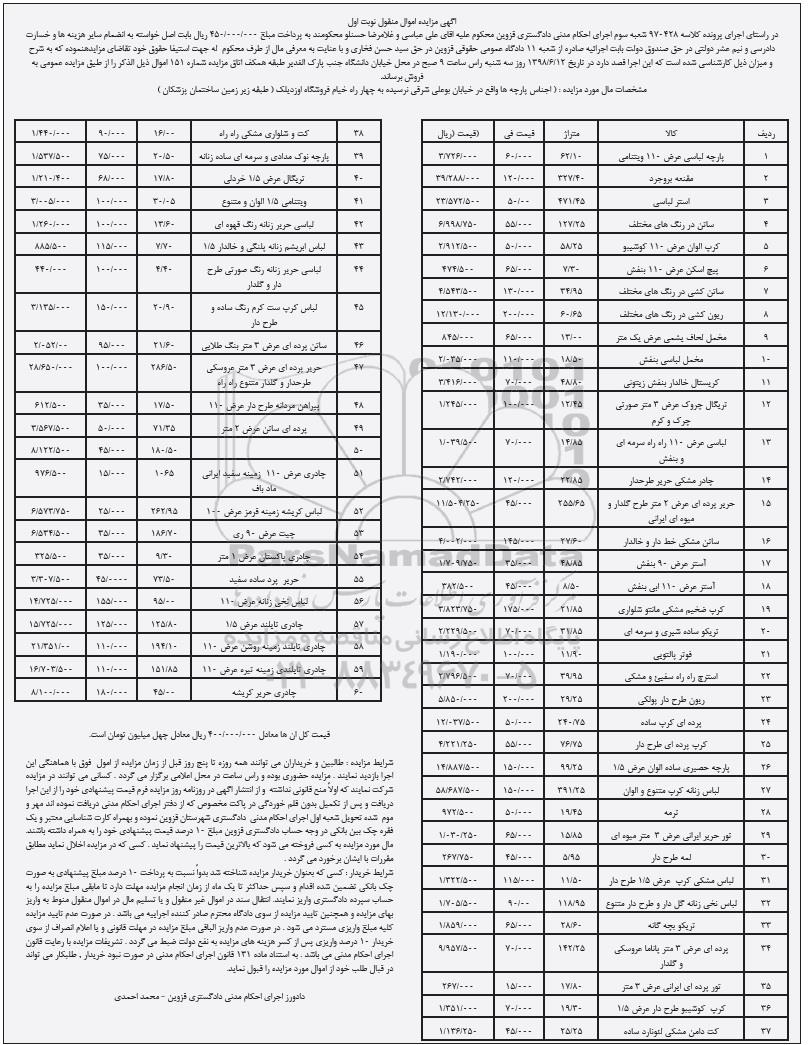 آگهی مزایده اموال منقول نوبت اول
در راستای اجرای پرونده کلاسه ۹۷۰۴۲۸ شعبه سوم اجرای احکام مدنی دادگستری قزوین محکوم علیه آقای علی عباسی و غلامرضا حسنلو محکومند به پرداخت مبلغ ۴۵۰/۰۰۰/۰۰۰ ریال بابت اصل خواسته به انضمام سایر هزینه ها و خسارت
دادرسی و نیم عشر دولتی در حق صندوق دولت بابت اجرائیه صادره از شعبه ۱۱ دادگاه عمومی حقوقی قزوین در حق سید حسن فخاری و با عنایت به معرفی مال از طرف محکوم له جهت استیفا حقوق خود تقاضای مزایدهنموده که به شرح
و میزان ذیل کارشناسی شده است که این اجرا قصد دارد در تاریخ ۱۳۹۸/۶/۱۲ روز سه شنبه راس ساعت ۹ صبح در محل خیابان دانشگاه جنب پارک الغدیر طبقه همکف اتاق مزایده شماره ۱۵۱ اموال ذیل الذکر را از طریق مزایده عمومی به
فروش برساند.
مشخصات مال مورد مزایده : ( اجناس پارچه ها واقع در خیابان بوعلی شرقی نرسیده به چهار راه خیام فروشگاه اوزدیلک ( طبقه زیر زمین ساختمان پزشکان )
ردیف کالا متراژ قیمت فی (قیمت (ریال
۱ پارچه لباسی عرض ۱۱۰ ویتنامی ۶۲/۱۰ ۶۰/۰۰۰ ۳/۷۲۶/۰۰۰
۲ مقنعه بروجرد ۳۲۷/۴۰ ۱۲۰/۰۰۰ ۳۹/۲۸۸/۰۰۰
۳ استر لباسی ۴۷۱/۴۵ ۵۰/۰۰ ۲۳/۵۷۲/۵۰۰
۴ ساتن در رنگ های مختلف ۱۲۷/۲۵ ۵۵/۰۰۰ ۶/۹۹۸/۷۵۰
۵ کرپ الوان عرض ۱۱۰ کوئتیبو ۵۸/۲۵ ۵۰/۰۰۰ ۲/۹۱۲/۵۰۰
۶ پیچ اسکن عرض ۱۱۰ بنفش ۷/۳۰ ۶۵/۰۰۰ ۴۷۴/۵۰۰
۷ ساتن کشی در رنگ های مختلف ۳۴/۹۵ ۱۳۰/۰۰۰ ۴/۵۴۳/۵۰۰
۸ ریون کشی در رنگ های مختلف ۶۰/۶۵ ۲۰۰/۰۰۰ ۱۲/۱۳۰/۰۰۰
۹ مخمل لحاف یشمی عرض یک متر ۱۳/۰۰ ۶۵/۰۰۰ ۸۴۵/۰۰۰
۱۰ مخمل لباسی بنفش ۱۸/۵۰ ۱۱۰/۰۰۰ ۲/۰۳۵/۰۰۰
۱۱ کریستال خالدار بنفش زیتونی ۴۸/۸۰ ۷۰/۰۰۰ ۳/۴۱۶/۰۰۰
۱۲ تریگال چروک عرض ۳ متر صورتی ۱۲/۴۵ ۱۰۰/۰۰۰ ۱/۲۴۵/۰۰۰
چرک و کرم
۱۳ لباسی عرض ۱۱۰ راه راه سرمه ای ۱۴/۸۵ ۷۰/۰۰۰ ۱/۰۳۹/۵۰۰
و بنفش
۱۴ چادر مشکی حریر طرحدار ۲۲/۸۵ ۱۲۰/۰۰۰ ۲/۷۴۲/۰۰۰
۱۵ حریر پرده ای عرض ۲ متر طرح گلدار و ۲۵۵/۶۵ ۴۵/۰۰۰ ۱۱/۵۰۴/۲۵۰
میوه ای ایرانی
۱۶ ساتن مشکی خط دار و خالدار ۲۷/۶۰ ۱۴۵/۰۰۰ ۴/۰۰۲/۰۰۰
۱۷ آستر عرض ۹۰ بنفش ۴۸/۸۵ ۳۵/۰۰۰ ۱/۷۰۹/۷۵۰
۱۸ آستر عرض ۱۱۰ ابی بنفش ۸/۵۰ ۴۵/۰۰۰ ۳۸۲/۵۰۰
۱۹ کرپ ضخیم مشکی مانتو شلواری ۲۱/۸۵ ۱۷۵/۰۰۰ ۳/۸۲۳/۷۵۰
۲۰ تریکو ساده شیری و سرمه ای ۳۱/۸۵ ۷۰/۰۰۰ ۲/۲۲۹/۵۰۰
۲۱ فوتر پالتویی ۱۱/۹۰ ۱۰۰/۰۰۰ ۱/۱۹۰/۰۰۰
۲۲ استرچ راه راه سفیئ و مشکی ۳۹/۹۵ ۷۰/۰۰۰ ۲/۷۹۶/۵۰۰
۲۳ ریون طرح دار پولکی ۲۹/۲۵ ۲۰۰/۰۰۰ ۵/۸۵۰/۰۰۰
۲۴ پرده ای کرپ ساده ۲۴۰/۷۵ ۵۰/۰۰۰ ۱۲/۰۳۷/۵۰۰
۲۵ کرپ پرده ای طرح دار ۷۶/۷۵ ۵۵/۰۰۰ ۴/۲۲۱/۲۵۰
۲۶ پارچه حصیری ساده الوان عرض ۱/۵ ۹۹/۲۵ ۱۵۰/۰۰۰ ۱۴/۸۸۷/۵۰۰
۲۷ لباس زنانه کرپ متنوع و الوان ۳۹۱/۲۵ ۱۵۰/۰۰۰ ۵۸/۶۸۷/۵۰۰
۲۸ ترمه ۱۹/۴۵ ۵۰/۰۰۰ ۹۷۲/۵۰۰
۲۹ تور حریر ایرانی عرض ۳ متر میوه ای ۱۵/۸۵ ۶۵/۰۰۰ ۱/۰۳۰/۲۵۰
۳۰ لمه طرح دار ۵/۹۵ ۴۵/۰۰۰ ۲۶۷/۷۵۰
۳۱ لباس مشکی کرپ عرض ۱/۵ طرح دار ۱۱/۵۰ ۱۱۵/۰۰۰ ۱/۳۲۲/۵۰۰
۳۲ لباس نخی زنانه گل دار و طرح دار متنوع ۱۱۸/۹۵ ۹۰/۰۰ ۱/۷۰۵/۵۰۰
۳۳ تریکو بچه گانه ۲۸/۶۰ ۶۵/۰۰۰ ۱/۸۵۹/۰۰۰
۳۴ پرده ای عرض ۳ متر پاناما عروسکی ۱۴۲/۲۵ ۷۰/۰۰۰ ۹/۹۵۷/۵۰۰
و گلدار
۳۵ تور پرده ای ایرانی عرض ۳ متر ۱۷/۸۰ ۱۵/۰۰۰ ۲۶۷/۰۰۰
۳۶ کرپ کوشتیبو طرح دار عرض ۱/۵ ۱۹/۳۰ ۷۰/۰۰۰ ۱/۳۵۱/۰۰۰
۳۷ کت دامن مشکی لئونارد ساده ۲۵/۲۵ ۴۵/۰۰۰ ۱/۱۳۶/۲۵۰
۳۸ کت و شلواری مشکی راه راه ۱۶/۰۰ ۹۰/۰۰۰ ۱/۴۴۰/۰۰۰
۳۹ پارچه نوک مدادی و سرمه ای ساده زنانه ۲۰/۵۰ ۷۵/۰۰۰ ۱/۵۳۷/۵۰۰
۴۰ تریگال عرض ۱/۵ خردلی ۱۷/۸۰ ۶۸/۰۰۰ ۱/۲۱۰/۴۰۰
۴۱ ویتنامی ۱/۵ الوان و متنوع ۳۰/۰۵ ۱۰۰/۰۰۰ ۳/۰۰۵/۰۰۰
۴۲ لباسی حریر زنانه رنگ قهوه ای ۱۳/۶۰ ۱۰۰/۰۰۰ ۱/۲۶۰/۰۰۰
۴۳ لباس ابریشم زنانه پلنگی و خالدار ۱/۵ ۷/۷۰ ۱۱۵/۰۰۰ ۸۸۵/۵۰۰
۴۴ لباسی حریر زنانه رنگ صورتی طرح ۴/۴۰ ۱۰۰/۰۰۰ ۴۴۰/۰۰۰
دار و گلدار
۴۵ لباس کرپ ست کرم رنگ ساده و ۲۰/۹۰ ۱۵۰/۰۰۰ ۳/۱۳۵/۰۰۰
طرح دار
۴۶ ساتن پرده ای عرض ۳ متر بنگ طلایی ۲۱/۶۰ ۹۵/۰۰۰ ۲/۰۵۲/۰۰
۴۷ حریر پرده ای عرض ۳ متر عروسکی ۲۸۶/۵۰ ۱۰۰/۰۰۰ ۲۸/۶۵۰/۰۰۰
طرحدار و گلدار متنوع راه راه
۴۸ پیراهن مردانه طرح دار عرض ۱۱۰ ۱۷/۵۰ ۳۵/۰۰۰ ۶۱۲/۵۰۰
۴۹ پرده ای ساتن عرض ۲ متر ۷۱/۳۵ ۵۰/۰۰۰ ۳/۵۶۷/۵۰۰
۵۰ ۱۸۰/۵۰ ۴۵/۰۰۰ ۸/۱۲۲/۵۰۰
۵۱ چادری عرض ۱۱۰ زمینه سفید ایرانی ۱۰۶۵ ۱۵/۰۰۰ ۹۷۶/۵۰۰
ماد باف
۵۲ لباس کریشه زمینه قرمز عرض ۱۰۰ ۲۶۲/۹۵ ۲۵/۰۰۰ ۶/۵۷۳/۷۵۰
۵۳ چیت عرض ۹۰ ری ۱۸۶/۷۰ ۳۵/۰۰۰ ۶/۵۳۴/۵۰۰
۵۴ چادری پاکستان عرض ۱ متر ۹/۳۰ ۳۵/۰۰۰ ۳۲۵/۵۰۰
۵۵ حریر پرد ساده سفید ۷۳/۵۰ ۴۵/۰۰۰۰ ۳/۳۰۷/۵۰۰
۵۶ لباس نخی زنانه عرض ۱۱۰ ۹۵/۰۰ ۱۵۵/۰۰۰ ۱۴/۷۲۵/۰۰۰
۵۷ چادری تایلند عرض ۱/۵ ۱۲۵/۸۰ ۱۲۵/۰۰۰ ۱۵/۷۲۵/۰۰۰
۵۸ چادری تایلند زمینه روشن عرض ۱۱۰ ۱۹۴/۱۰ ۱۱۰/۰۰۰ ۲۱/۳۵۱/۰۰
۵۹ چادری تایلندی زمینه تیره عرض ۱۱۰ ۱۵۱/۸۵ ۱۱۰/۰۰۰ ۱۶/۷۰۳/۵۰۰
۶۰ چادری حریر کریشه ۴۵/۰۰ ۱۸۰/۰۰۰ ۸/۱۰۰/۰۰۰
قیمت کل ان ها معادل ۴۰۰/۰۰۰/۰۰۰ ریال معادل چهل میلیون تومان است.
شرایط مزایده : طالبین و خریداران می توانند همه روزه تا پنج روز قبل از زمان مزایده از اموال فوق با هماهنگی این
اجرا بازدید نمایند . مزایده حضوری بوده و راس ساعت در محل اعلامی برگزار می گردد . کسانی می توانند در مزایده
شرکت نمایند که اولاً منع قانونی نداشته و از انتشار آگهی در روزنامه روز مزایده فرم قیمت پیشنهادی خود را از این اجرا
دریافت و پس از تکمیل بدون قلم خوردگی در پاکت مخصوص که از دفتر اجرای احکام مدنی دریافت نموده اند مهر و
موم شده تحویل شعبه اول اجرای احکام مدنی دادگستری شهرستان قزوین نموده و بهمراه کارت شناسایی معتبر و یک
فقره چک بین بانکی در وجه حساب دادگستری قزوین مبلغ ۱۰ درصد قیمت پیشنهادی خود را به همراه داشته باشند.
مال مورد مزایده به کسی فروخته می شود که بالاترین قیمت را پیشنهاد نماید . کسی که در مزایده اخلال نماید مطابق
مقررات با ایشان برخورد می گردد .
شرایط خریدار : کسی که بعنوان خریدار مزایده شناخته شد بدواً نسبت به پرداخت ۱۰ درصد مبلغ پیشنهادی به صورت
چک بانکی تضمین شده اقدام و سپس حداکثر تا یک ماه از زمان انجام مزایده مهلت دارد تا مابقی مبلغ مزایده را به
حساب سپرده دادگستری واریز نمایند. انتقال سند در اموال غیر منقول و یا تسلیم مال در اموال منقول منوط به واریز
بهای مزایده و همچنین تایید مزایده از سوی دادگاه محترم صادر کننده اجراییه می باشد . در صورت عدم تایید مزایده
کلیه مبلغ واریزی مسترد می شود . در صورت عدم واریز الباقی مبلغ مزایده در مهلت قانونی و یا اعلام انصراف از سوی
خریدار ۱۰ درصد واریزی پس از کسر هزینه های مزایده به نفع دولت ضبط می گردد . تشریفات مزایده با رعایت قانون
اجرای احکام مدنی می باشد . به استناد ماده ۱۳۱ قانون اجرای احکام مدنی در صورت نبود خریدار , طلبکار می تواند
در قبال طلب خود از اموال مورد مزایده را قبول نماید.
دادورز اجرای احکام مدنی دادگستری قزوین - محمد احمدی
ParsNamadData
پایگاه اطلاع رسانی مناقصه و مزایده
۰۲۱-۸۸۳۴۹۶۷۰-۵